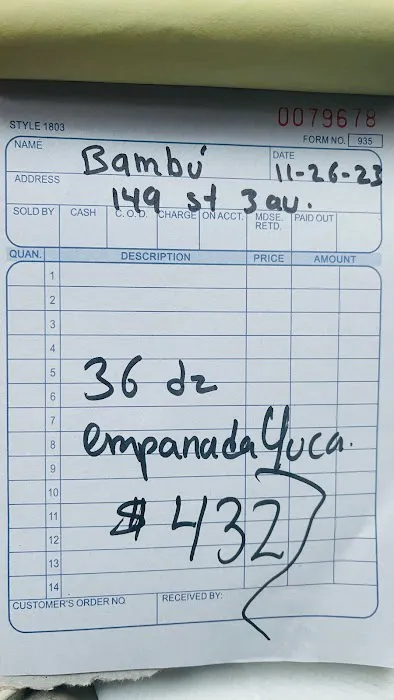 0079678
STYLE 1803
FORM NO. 935
NAME Bambú
DATE 11-26-23
ADDRESS 149 st 3 av.
SOLD BY CASH C.O.D. CHARGE ON ACCT. MDSE. RETD. PAID OUT
QUAN. DESCRIPTION PRICE AMOUNT
1
2
3
4
5
36 dz
6
7
8
empanada Yuca.
9
10
11
$432
12
13
14
CUSTOMER'S ORDER NO.
RECEIVED BY: